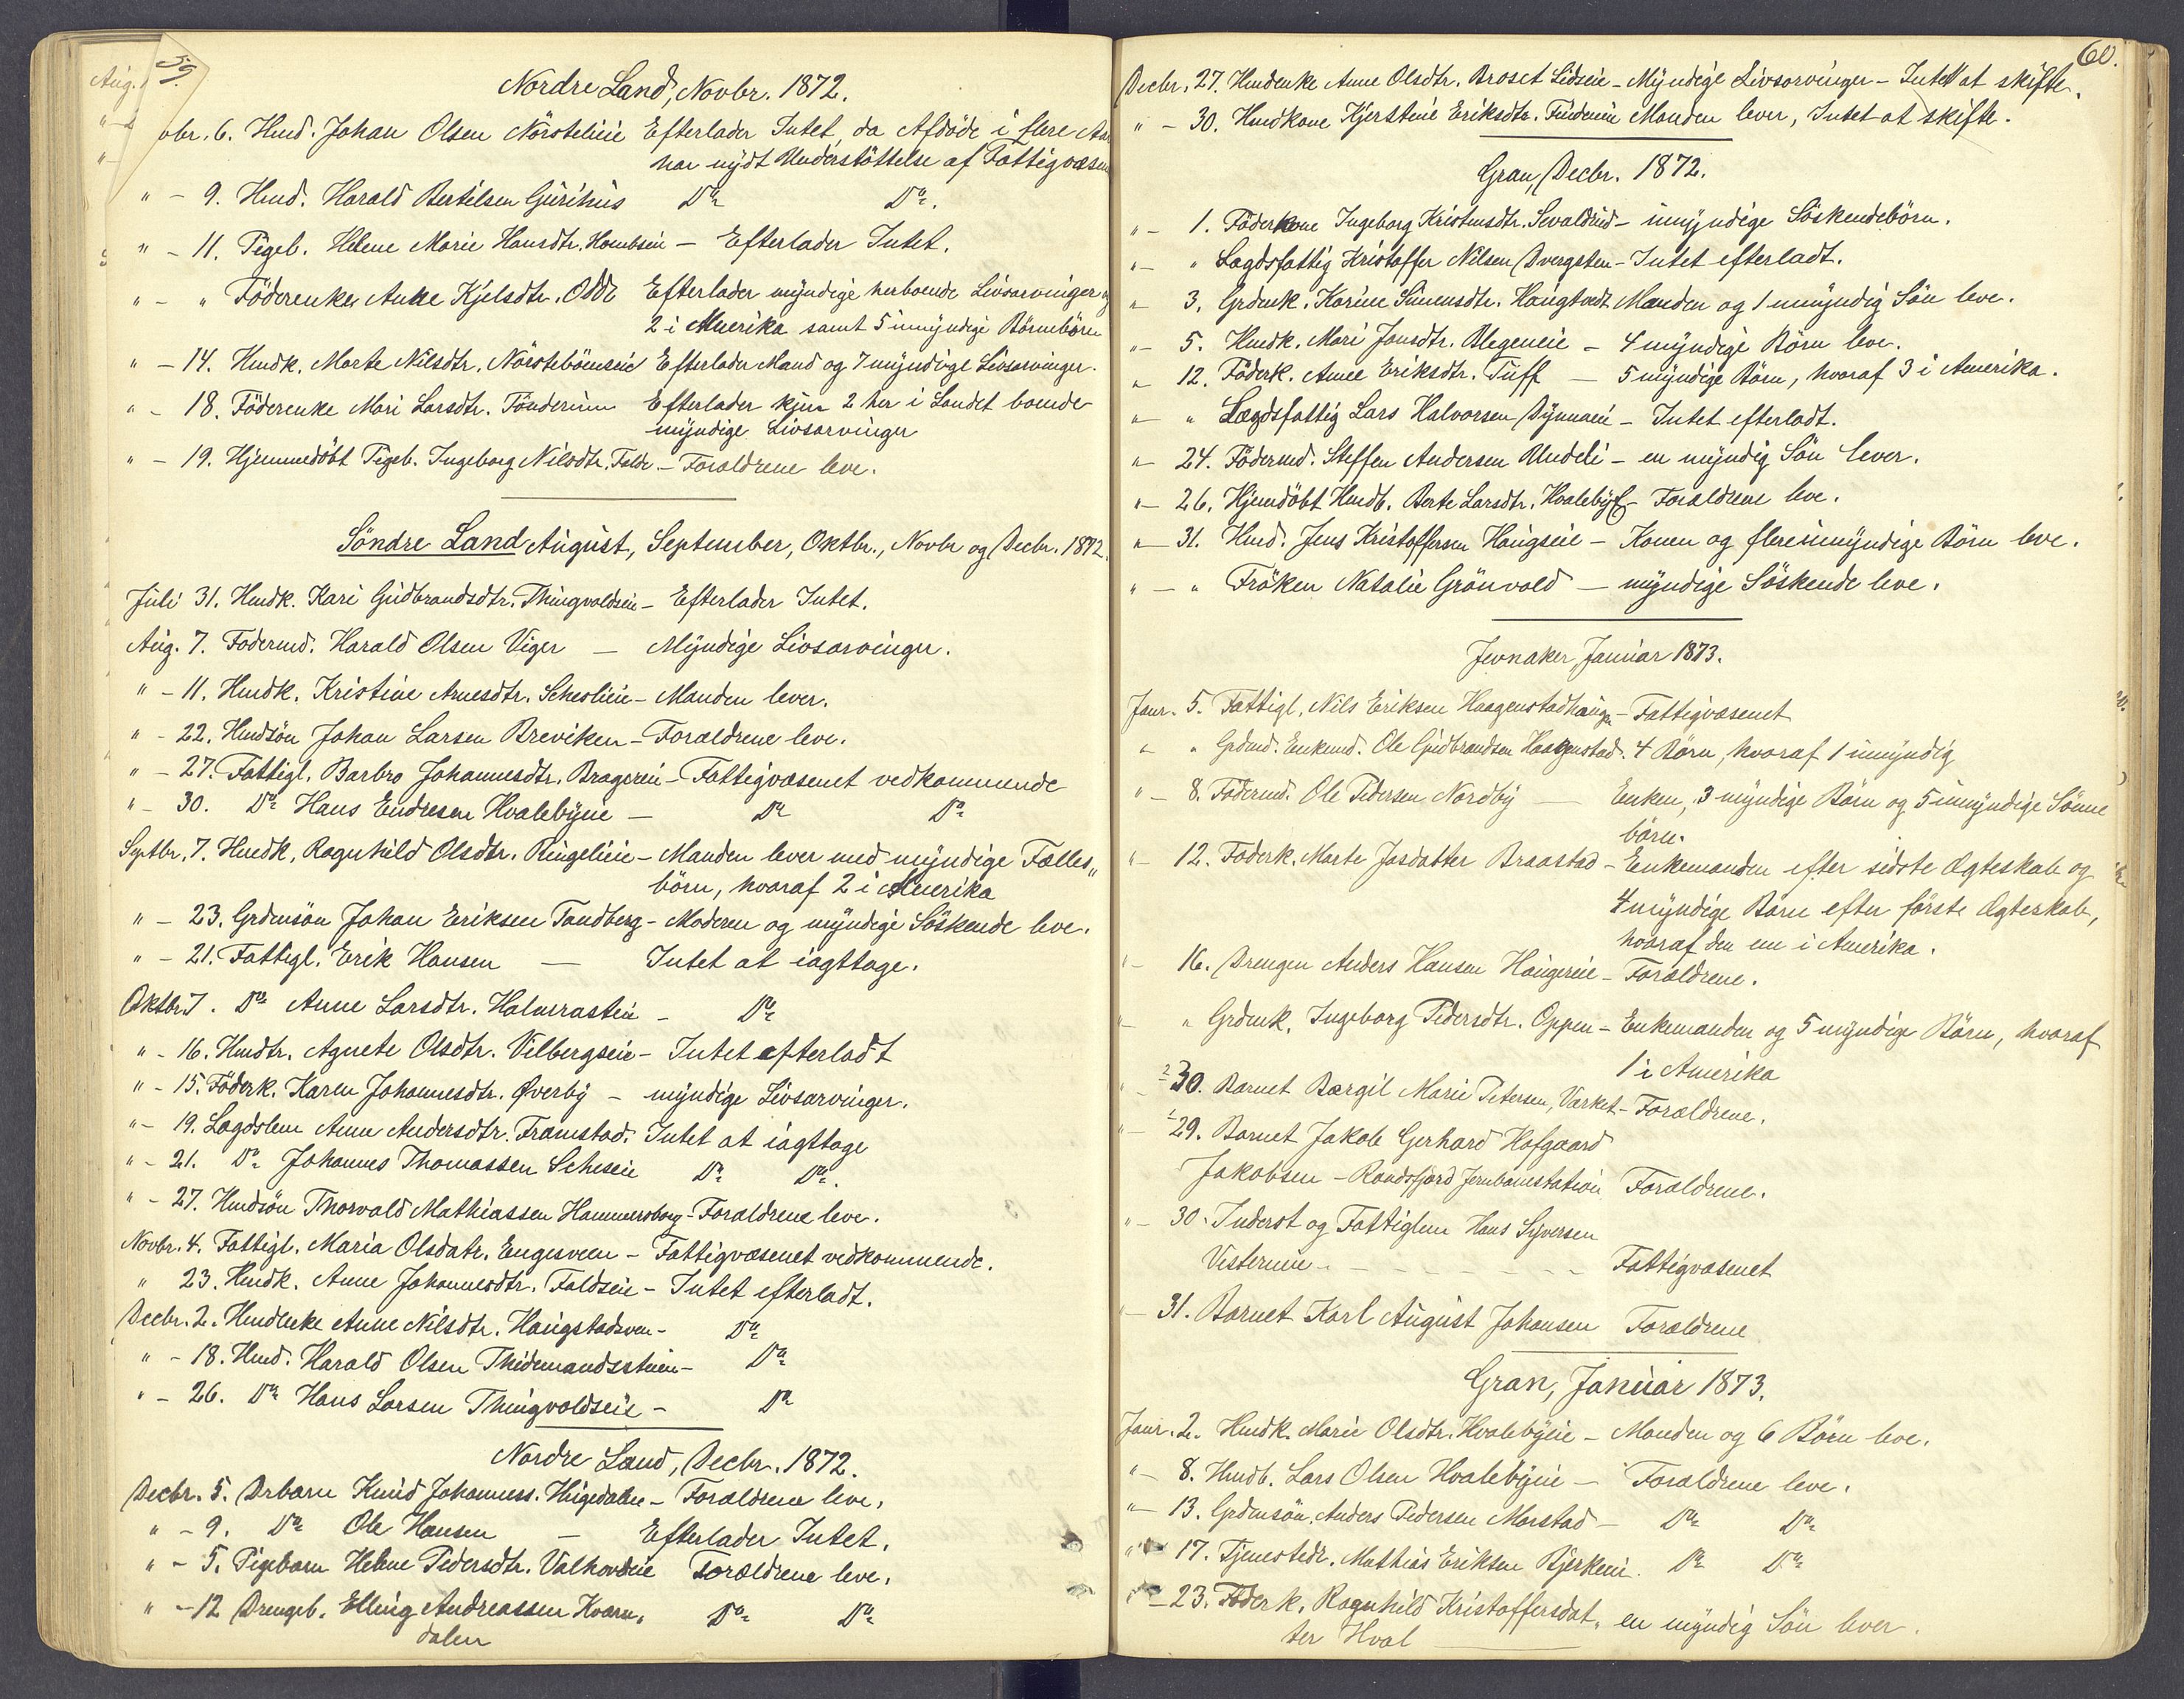 59.
Aug.
Nordre Land, Novbr. 1872.
vbr. 6. Hmd. Johan Olsen Nörstelieie Efterlader Intet, da Afdöde i flere Aar
har nydt Understöttelse af Fattigvæsen
" - 9. Hmd. Harald Bertilsen Gürihüs Do Do.
" - 11. Pigeb. Helene Marie Hansdtr. - Efterlader Intet.
" - " Föderenke Anne Kjelsdtr. Odde Efterlader myndige herboende Livsarvinger og
2 i Amerika samt 5 umyndige Börnebörn
" - 14. Hmdk. Marte Nilsdtr. Efterlader Mand og 7 myndige Livsarvinger.
" - 18. Föderenke Mari Larsdtr. Efterlader kun 2 her i Landet boende
myndige Livsarvinger
" - 19. Hjemmedöbt Pigeb. Ingeborg Nilsdtr. - Forældrene leve.
Söndre Land August, September, Oktbr., Novbr og Decbr. 1872.
Juli 31. Hmdk. Kari Gudbrandsdtr. Thingvoldseie - Efterlader Intet.
Aug. 7. Födermd. Harald Olsen Viger - Myndige Livsarvinger.
" - 11. Hmdk. Kristine Arnesdtr. - Manden lever.
" - 22. Hmdsön Johan Larsen Breviken - Forældrene leve.
" - 27. Fattigl. Barbro Johannesdtr. - Fattigvæsenet vedkommende
" - 30. Do Hans Endresen Hvalebyeie - Do Do
Septbr. 7. Hmdk. Ragnhild Olsdtr. Ringelieie - Manden lever med myndige Fælles„
börn, hvoraf 2 i Amerika
" - 23. Grdmsön Johan Eriksen Tandberg - Moderen og myndige Söskende leve.
" - 21. Fattigl. Erik Hansen - Intet at iagttage.
Oktbr. 7. Do Anne Larsdtr. - Do
" - 16. Hmdtr. Agnete Olsdtr. Vilbergseie - Intet efterladt
" - 15. Föderk. Karen Johannesdtr. Överby - myndige Livsarvinger.
" - 19. Lægdslem Anne Andersdtr. Framstad. Intet at iagttage
" - 21. Do Johannes Thomassen Do Do.
" - 27. Hmdsön Thorvald Mathiassen Hammersborg - Forældrene leve.
Novbr. 4. Fattigl. Maria Olsdatr. Engesveen - Fattigvæsenet vedkommende.
" 23. Hmdk. Anne Johannesdtr. Faldseie - Intet efterladt.
Decbr. 2. Hmdenke Anne Nilsdtr. - Do
" - 18. Hmd. Harald Olsen Thidemandsstuen - Do
" - 26. Do Hans Larsen Thingvoldseie - Do
Nordre Land, Decbr. 1872.
Decbr. 5. Drbarn Knud Johanness. - Forældrene leve.
" - 9. Do Ole Hansen - Efterlader Intet.
" - 5. Pigebarn Helene Pedersdtr. Forældrene leve.
" - 12 Drengeb. Elling Andreassen Kværn„ Do Do
dalen
60.
Decbr. 27. Hmdenke Anne Olsdtr. - Myndige Livsarvinger - Intet at skifte.
" - 30. Hmdkone Kjerstine Eriksdtr. Manden lever, Intet at skifte.
Gran, Decbr. 1872.
" - 1. Föderkone Ingeborg Kristensdtr. Sevaldrud - umyndige Söskendebörn.
" - " Lægdsfattig Kristoffer Nilsen Dvergsten - Intet efterladt.
" 3. Grdmk. Karine Simensdtr. Manden og 1 umyndig Sön leve.
" - 5. Hmdk. Mari Jansdtr. - 4 myndige Börn leve.
" 12. Föderk. Anne Eriksdtr. Tuff - 5 myndige Börn, hvoraf 3 i Amerika.
" - " Lægdsfattig Lars Halvorsen Dynnaeie - Intet efterladt.
" - 24. Födermd. Steffen Andersen Undeli - en myndig Sön lever.
" - 26. Hjemdöbt Hmdb. Berte Larsdtr. - Forældrene leve.
" - 31. Hmd. Jens Kristoffersen Haugseie - Konen og flere umyndige Börn leve.
" - " Fröken Natalie Grönvold - myndige Söskende leve.
Jevnaker, Januar 1873.
Janr. 5. Fattigl. Nils Eriksen - Fattigvæsenet
" " Grdmd. Enkemd. Ole Gudbrandsen Haagenstad. 4 Börn, hvoraf 1 umyndig
" - 8. Födermd. Ole Pedersen Nordby - Enken, 3 myndige Börn og 5 umyndige Sönne
börn.
" - 12. Föderk. Marte Braastad - Enkemanden efter sidste Ægteskab og
4 myndige Börn efter förste Ægteskab,
hvoraf den ene i Amerika.
" - 16. Drengen Anders Hansen Haugereie - Forældrene.
" - " Grdmk. Ingeborg Pedersdtr. Oppen - Enkemanden og 5 myndige Börn, hvoraf
1 i Amerika
2 30. Barnet Bærgit Marie Petersen, Værket - Forældrene.
1 29. Barnet Jakob Gerhard Hofgaard
Jakobsen - Randsfjord Jernbanestation Forældrene.
" - 30. Inderst og Fattiglem Hans Syversen
Fattigvæsenet
" - 31. Barnet Karl August Johansen Forældrene
Gran, Januar 1873.
Janr. 2. Hmdk. Marie Olsdtr. Hvalebyeie - Manden og 6 Börn leve.
" - 8. Hmdb. Lars Olsen Hvalebyeie - Forældrene leve.
" - 13. Grdmsön. Anders Pedersen Morstad - Do Do
" 17. Tjenestedr. Mathias Eriksen Do Do
- 23. Föderk. Ragnhild Kristoffersdat„ en myndig Sön lever.
ter Hval